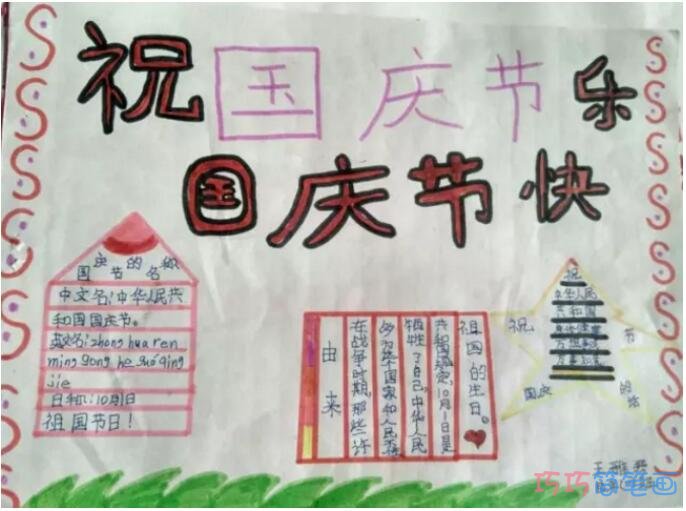 祝国庆节乐
国庆节快
国庆节的名
中文名：中华人民共
和国国庆节。
英文名：zhong hua ren
ming gong he guó qing
jie
日和：10月1日
祖国节日！
由来
在战争时期，那些许
多为整个国家和人民
牺牲了自己，中华人民
共和国规定，10月1日是
祖国的生日。
祝
中华人民
共和国
身体健康
万事如意
祝
节
国庆
的
巧巧简笔画